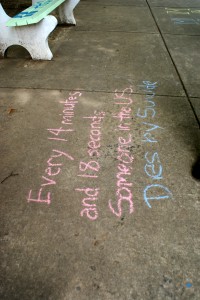 Every 14 minutes
and 18 seconds
Someone in the U.S.
Dies by Suicide